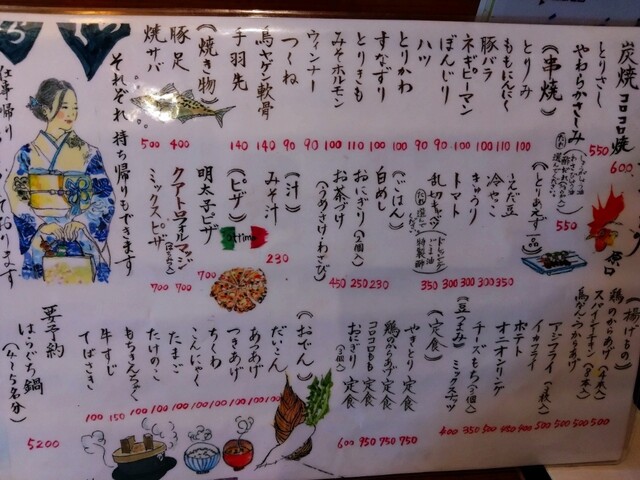 炭焼コロコロ焼
600
とりさし
550
やわらかさしみ
《串焼》
とりみ 100
ももにんにく 110
豚バラ 100
ネギピーマン 100
ぼんじり 90
ハツ
とりかわ 90
すなずり 100
とりきも
みそホルモン 110
ウィンナー 90
つくね 90
鳥ヤゲン軟骨 140
手羽先 140
《焼き物》
豚足 400
焼サバ 500
それぞれ持ち帰りもできます
《とりあえず一品》
550
えだ豆 350
冷やっこ 300
きゅうり 300
トマト 300
乱切キャベツ 350
《ごはん》
白めし 230
おにぎり(2個入) 250
お茶づけ 450
(うめ・さけ・わさび)
《汁》
みそ汁 230
《ピザ》
明太子ピザ 700
クアトロフォルマッジ
(はちみつ) 700
ミックスピザ 700
《揚げもの》
鶏のからあげ 500
スパイシーチキン 500
鳥なんこつからあげ 500
アジフライ 500
イカフライ 500
ポテト 400
オニオンリング 450
チーズもち 350
ミックスナッツ 400
《定食》
やきとり定食 750
鶏のからあげ定食 950
コロコロもも定食 950
おにぎり定食 600
《おでん》
だいこん 100
あつあげ 100
つきあげ 100
ちくわ 100
こんにゃく 100
たまご 100
たけのこ 100
もちきんちゃく 100
牛すじ 150
てばさき 100
要予約
はらぐち鍋
(4〜5名分)
5200
仕事帰り